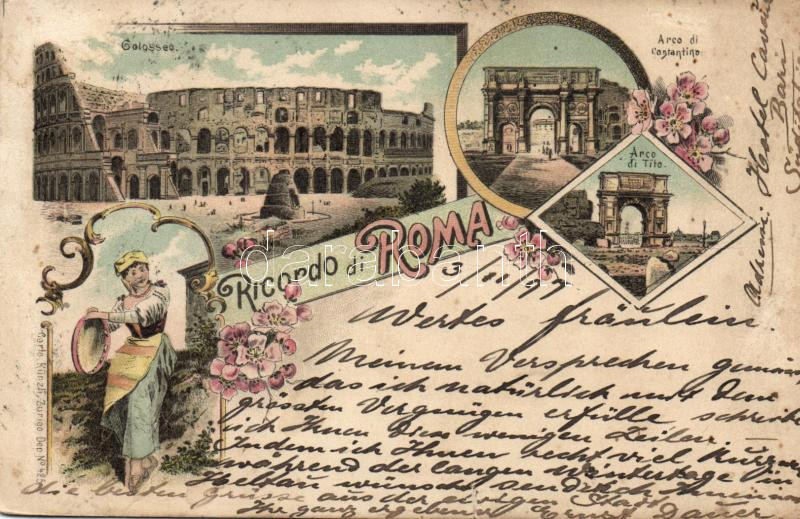 Colosseo.
Arco di
Costantino
Arco
di Tito.
Ricordo di ROMA
darabanth.com
Carlo Künzli, Zurigo Dep. No
Adresse: Hotel Cavour
Bari
3/1 1897
Wertes Fräulein.
Meinem Versprechen gemäss
das ich natürlich mit dem
grössten Vergnügen erfülle schreibe
ich Ihnen diese wenigen Zeilen.
Indem ich Ihnen recht viel Kurzweil
während der langen Wintertage in
Heltau wünsche sende ich Ihnen
die besten Grüsse aus der ewigen Stadt
Ihr ganz ergebener Ernst Dauer